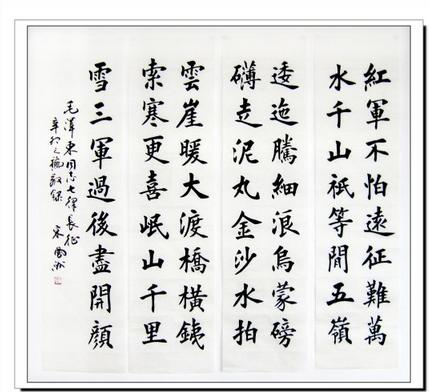 紅軍不怕遠征難萬
水千山祇等閒五嶺
逶迤騰細浪烏蒙磅
礴走泥丸金沙水拍
雲崖暖大渡橋橫銕
索寒更喜岷山千里
雪三軍過後盡開顏
毛澤東同志七律長征
辛卯之穐敬錄 宋